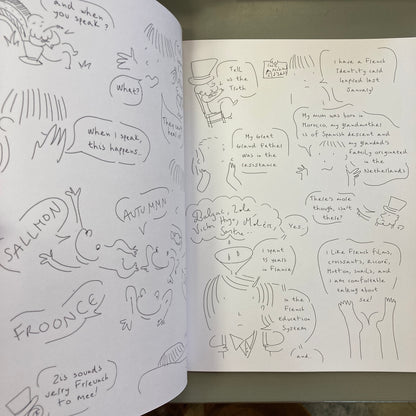 and when
you speak?
What?
Then can't
When I speak,
this happens.
SALLMON
AUTUMMN
FROONCE
Zis sounds
verry Frieunch
to mee!
Talk
us the
Truth
I have a French
Identity card
Expired last
January!
My mum was born in
Morocco, my grandmother
is of Spanish descent and
my grandad's
family originated
in the
Netherlands
My Great
Grand father
was in the
resistance
There's more
though isn't
there?
Balzac, Zola
Victor Hugo, Molière,
Sartre...
Yes..
I spent
15 years
in France
in the
French
education
System
and
I like French films,
croissants, Ricoré,
Motton, snails, and
I am comfortable
talking about
sex!